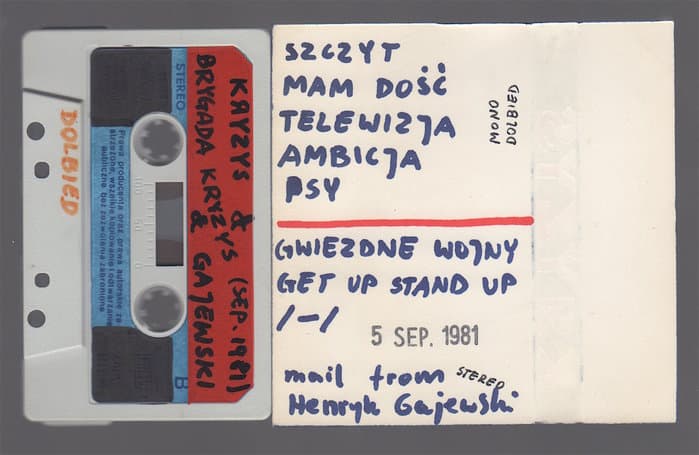 DOLBIED
STEREO
KRYZYS & (SEP. 1981)
BRYGADA KRYZYS & GAJEWSKI
Prawa producenta oraz prawa autorskie za
strzeżone, wszelkie kopiowanie i odtwarzanie
publiczne bez zezwolenia zabronione
100 50 0
B
SZCZYT
MAM DOŚĆ
TELEWIZJA
AMBICJA
PSY
DOLBIED
MONO
GWIEZDNE WOJNY
GET UP STAND UP
/-/
5 SEP. 1981
mail from STEREO
Henryk Gajewski